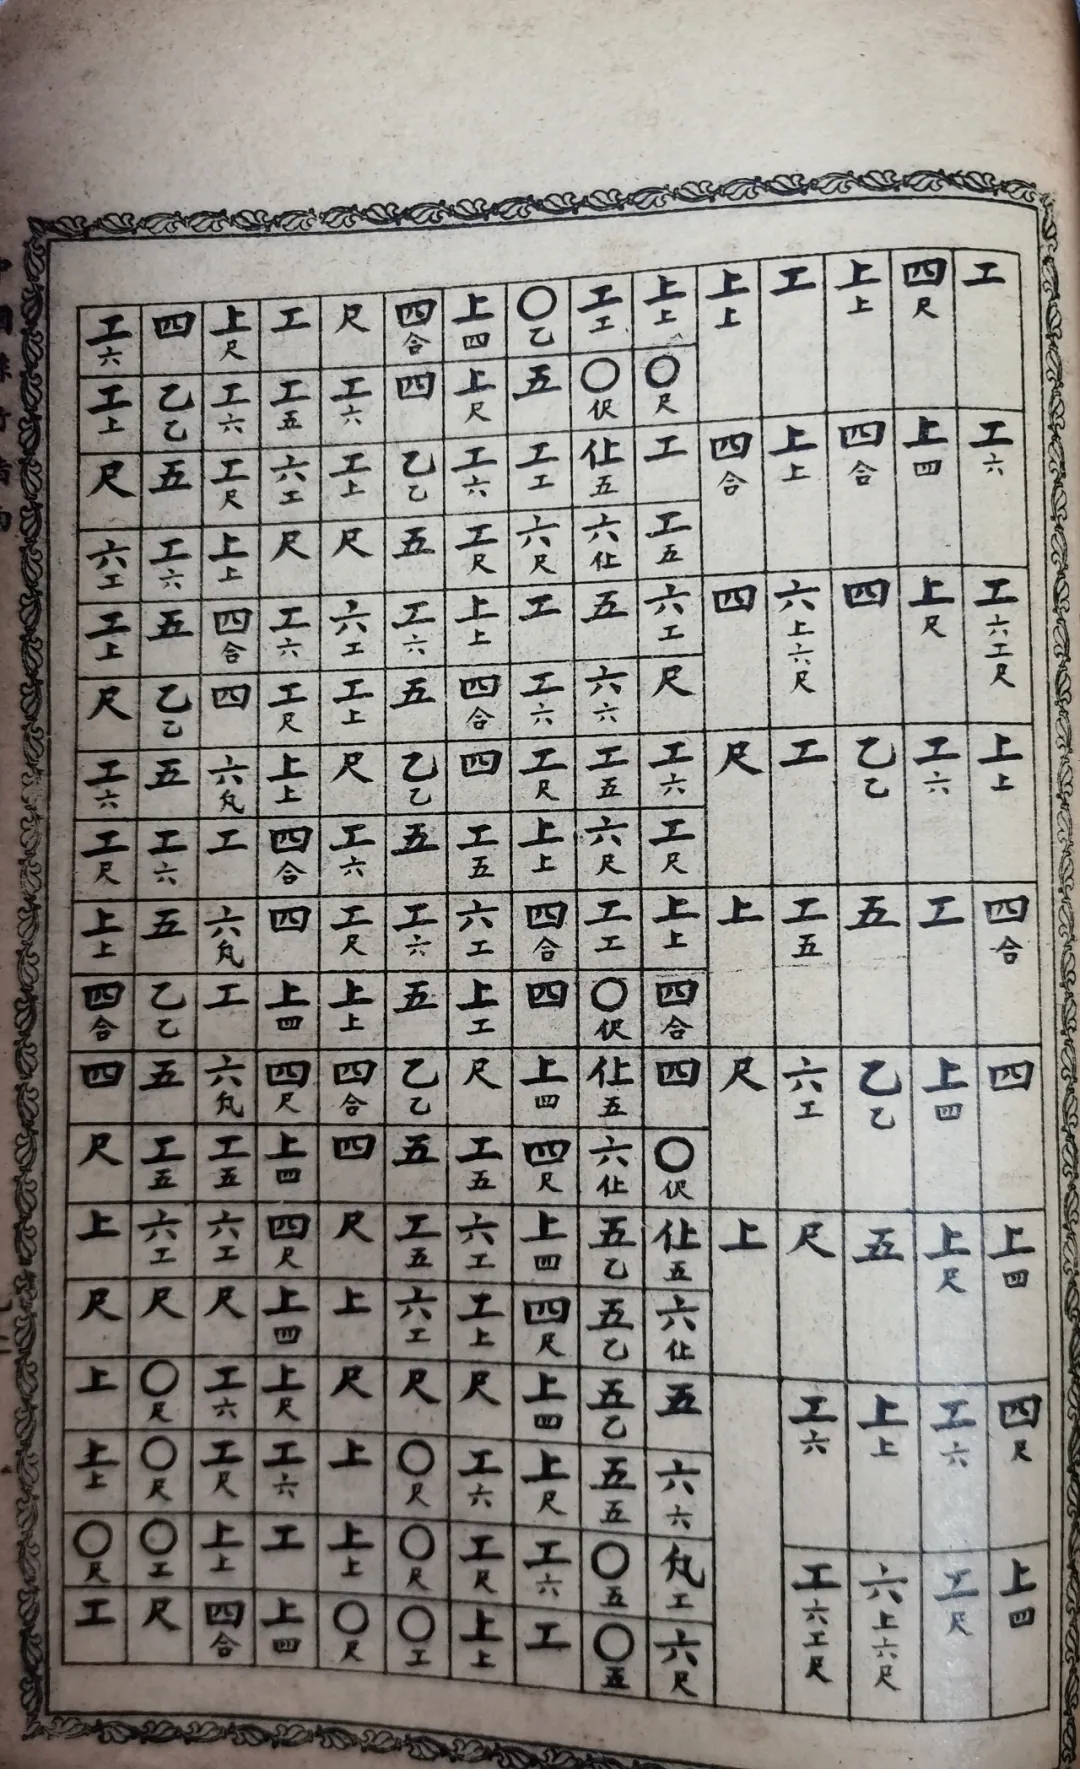 工 工六 工六工尺 上上 四合 四 上四 四尺 上四
四尺 上四 上尺 工六 工 上四 上尺 工六 工尺
上上 四合 四 乙乙 五 乙乙 五 上上 六上六尺
工 上上 六上六尺 工 工五 六工 尺 工六 工六工尺
上上 四合 四 尺 上 尺 上
上上 〇尺 工 工五 六工 尺 工六 工尺 上上 四合 四 〇伬 仩五 六仩 五 六六 凡工 六尺
工工 〇伬 仩五 六仩 五 六六 工五 六尺 工工 〇伬 仩五 六仩 五乙 五乙 五乙 五五 〇五 〇五
〇乙 五 工工 六尺 工 工六 工尺 上上 四合 四 上四 四尺 上四 四尺 上四 上尺 工六 工
上四 上尺 工六 工尺 上上 四合 四 工五 六工 上工 尺 工五 六工 工上 尺 工六 工尺 上上
四合 四 乙乙 五 工六 五 乙乙 五 工六 五 乙乙 五 工五 六工 尺 〇尺 〇尺 〇工
尺 工六 工上 尺 六工 工上 尺 工六 工尺 上上 四合 四 尺 上 尺 上 上上 〇尺
工 工五 六工 尺 工六 工尺 上上 四合 四 上四 四尺 上四 四尺 上四 上尺 工六 工 上四
上尺 工六 工尺 上上 四合 四 六凡 工 六凡 工 六凡 工五 六工 尺 工六 工尺 上上 四合
四 乙乙 五 工六 五 乙乙 五 工六 五 乙乙 五 工五 六工 尺 〇尺 〇尺 〇工 尺
工六 工上 尺 六工 工上 尺 工六 工尺 上上 四合 四 尺 上 尺 上 上上 〇尺 工